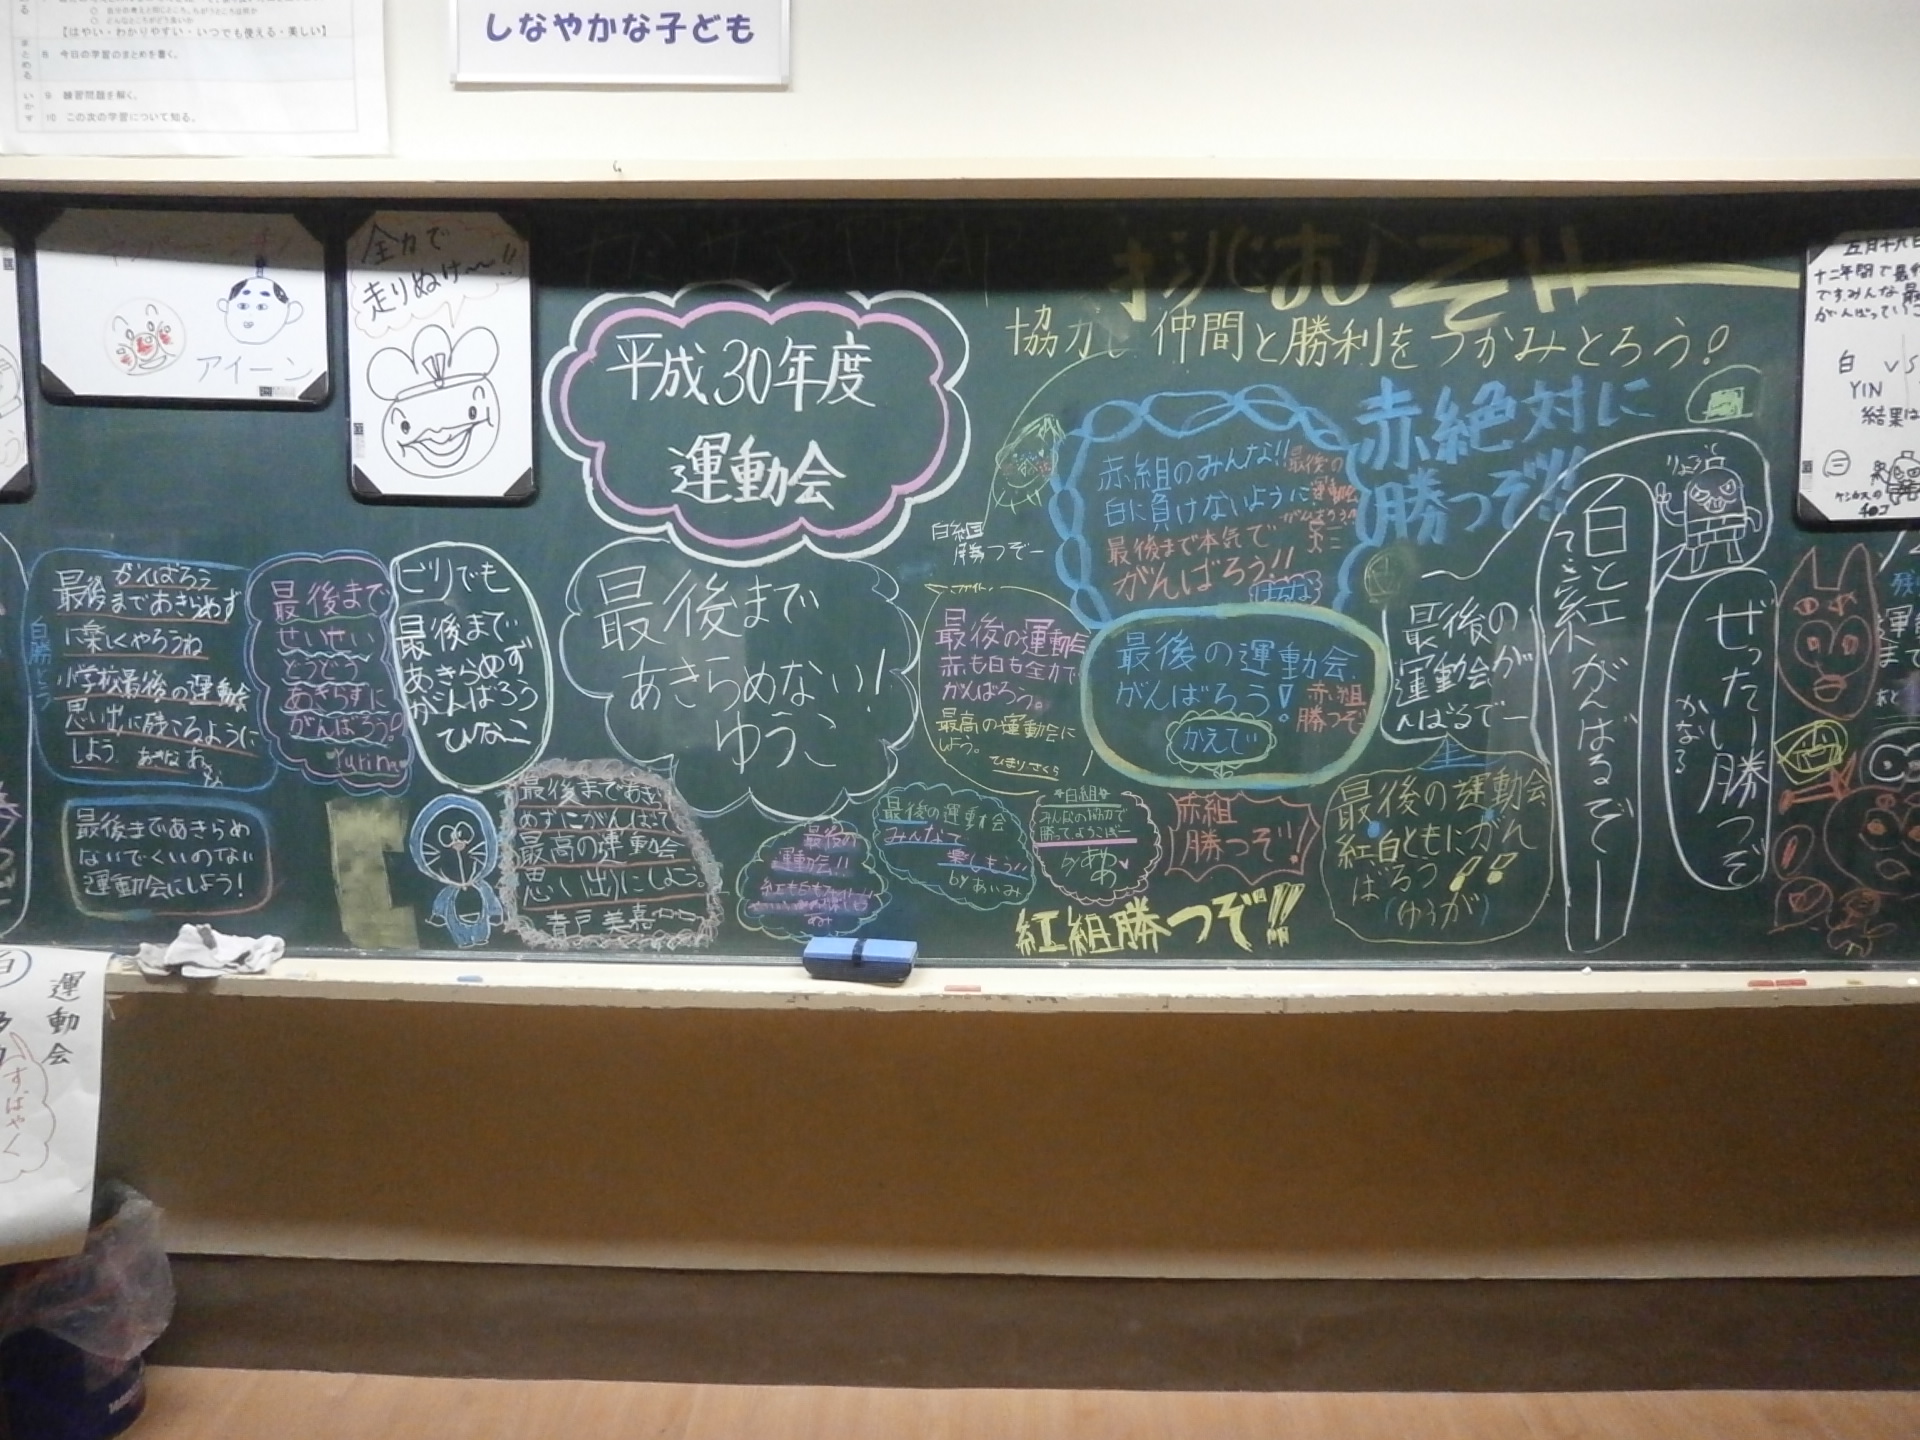 【はやい・わかりやすい・いつでも使える・美しい】
8 今日の学習のまとめを書く。
9 練習問題を解く。
10 この次の学習について知る。
まとめる
いかす
しなやかな子ども
アイーン
全力で
走りぬけ〜!!
平成30年度
運動会
協力し仲間と勝利をつかみとろう!
赤絶対に
勝つぞ!!
赤組のみんな!!
白に負けないように
最後まで本気で
がんばろう!!
はるな
最後の
運動会
がんばろう
白組
勝つぞー
がんばろう
最後まであきらめず
に楽しくやろうね
小学校最後の運動会
思い出に残こるように
しよう
白勝とう
最後まで
せいせい
どうどう
あきらずに
がんばろう!
Yurina
ビリでも
最後まで
あきらめず
がんばろう
ひなこ
最後まで
あきらめない!
ゆうこ
最後の運動会
赤も白も全力で
がんばろう。
最高の運動会に
しよう。
ひまり さくら
最後の運動会
がんばろう!
赤組
勝つぞ
かえで
最後の
運動会が
んばるでー
白と紅
がんばるぞー
りょう
ぜったい勝つぞ
かなる
最後まであきらめ
ないでくいのない
運動会にしよう!
最後まであきら
めずにがんばって
最高の運動会
思い出にしよう。
最後の
運動会!!
最後の運動会
みんなで
楽しもう!!
by あいみ
白組
みんなの協力で
勝ってようこぼー
by あめ
赤組
勝つぞ!
紅組勝つぞ!!
最後の運動会
紅白ともにがん
ばろう!!
(ゆうが)
五月十九日
十二年間で最
ですみんな最
がんばっていこ
白 VS
YIN
結果は
運動会
すばやく